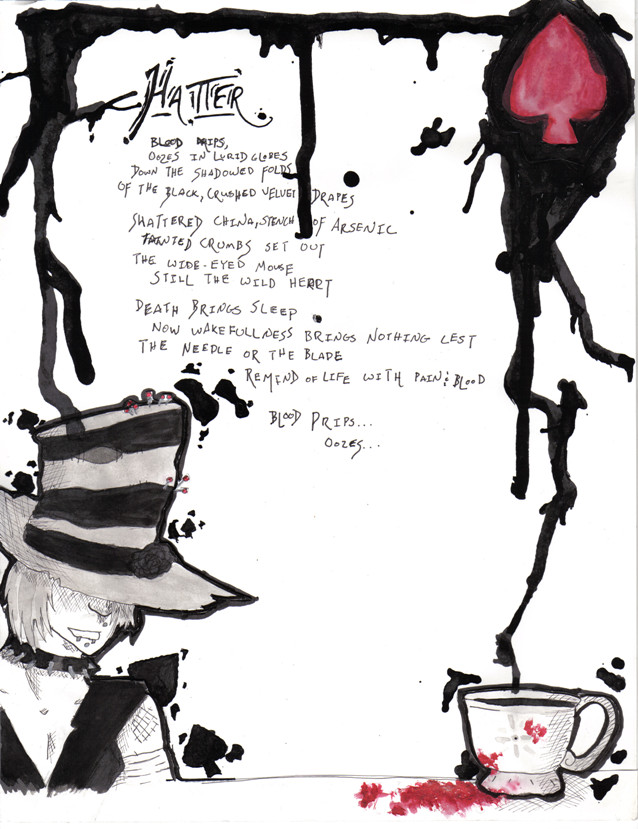 HATTER
BLOOD DRIPS,
OOZES IN LURID GLOBES
DOWN THE SHADOWED FOLDS
OF THE BLACK, CRUSHED VELVET DRAPES
SHATTERED CHINA, STENCH OF ARSENIC
TAINTED CRUMBS SET OUT
THE WIDE-EYED MOUSE
STILL THE WILD HEART
DEATH BRINGS SLEEP
NOW WAKEFULLNESS BRINGS NOTHING LEST
THE NEEDLE OR THE BLADE
REMIND OF LIFE WITH PAIN & BLOOD
BLOOD DRIPS...
OOZES...